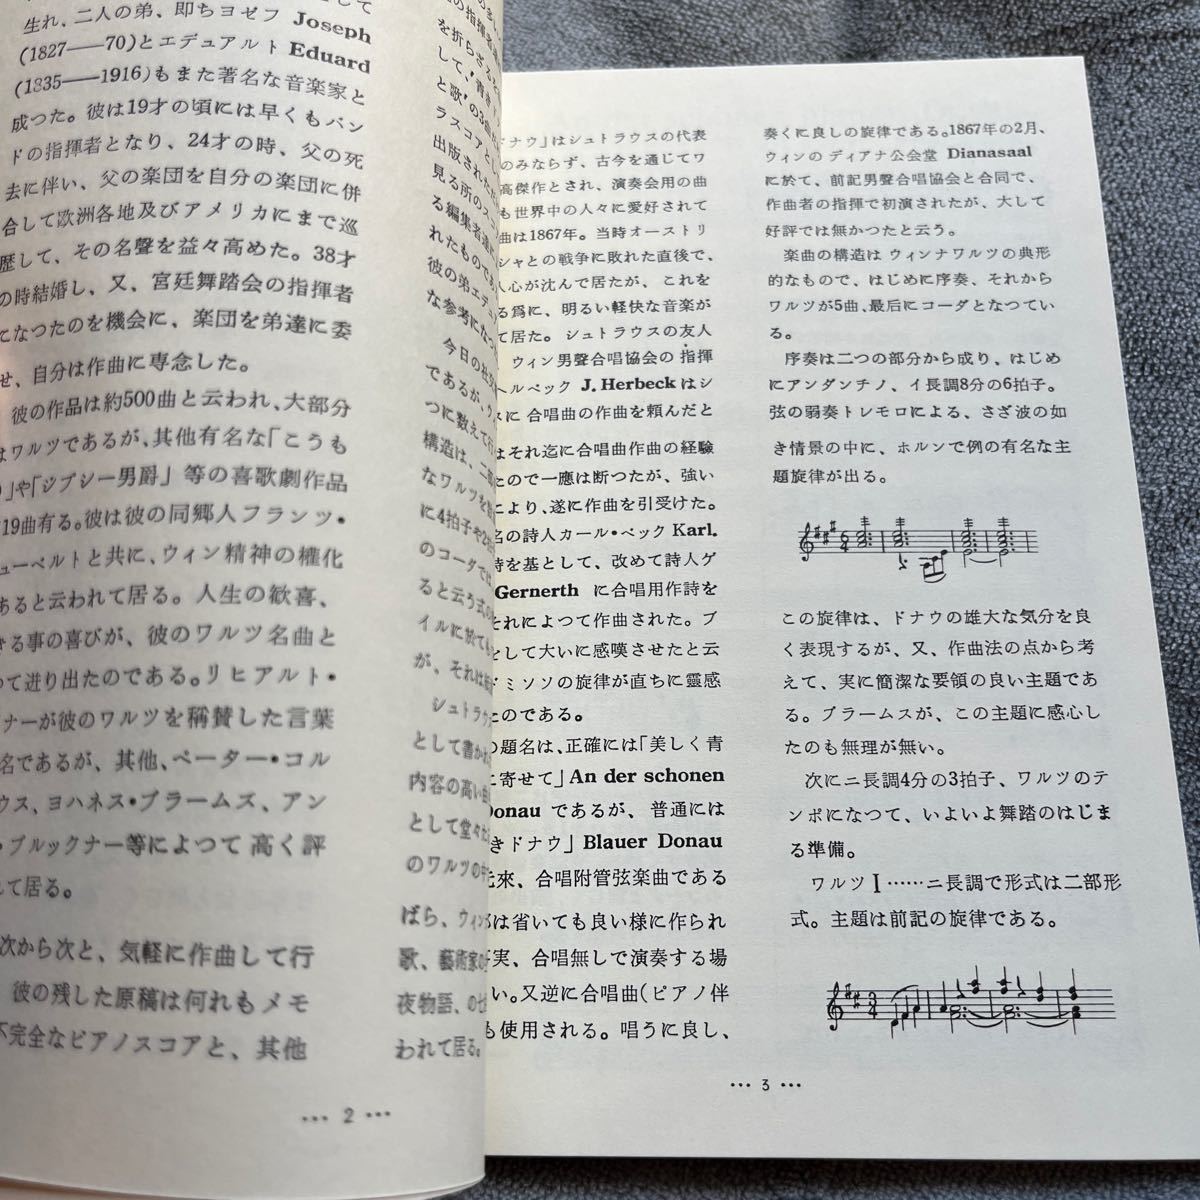 生れ、二人の弟、即ちヨゼフ Joseph
(1827——70)とエデュアルト Eduard
(1835——1916)もまた著名な音楽家と
成つた。彼は19才の頃には早くもバン
ドの指揮者となり、24才の時、父の死
去に伴い、父の楽団を自分の楽団に併
合して欧洲各地及びアメリカにまで巡
歴して、その名聲を益々高めた。38才
の時結婚し、又、宮廷舞踏会の指揮者
になつたのを機会に、楽団を弟達に委
せ、自分は作曲に専念した。
彼の作品は約500曲と云われ、大部分
はワルツであるが、其他有名な「こうも
」や「ジプシー男爵」等の喜歌劇作品
19曲有る。彼は彼の同郷人フランツ・
ューベルトと共に、ウィン精神の權化
あると云われて居る。人生の歓喜、
きる事の喜びが、彼のワルツ名曲と
つて迸り出たのである。リヒアルト・
ナーが彼のワルツを稱賛した言葉
名であるが、其他、ペーター・コル
ウス、ヨハネス・ブラームズ、アン
・ブルックナー等によつて高く評
れて居る。
次から次と、気軽に作曲して行
彼の残した原稿は何れもメモ
不完全なピアノスコアと、其他
の指揮者
を折らざる
して、「青き
と歌」の3曲
ラスコアとし
出版された
見る所のス
る編集者達
れたもので
彼の弟エデュ
な参考にな
今日の社交
であるが、ウィ
つに数えて
構造は、二部
なワルツを
に4拍子や2
のコーダで
ると云う式の
イルに於ても
が、それは
シュトラウ
として書か
内容の高い
として堂々
のワルツの中
ばら、ウィン
歌、藝術家の
夜物語、の七
われて居る。
••• 2 •••
ドナウ」はシュトラウスの代表
のみならず、古今を通じてワ
高傑作とされ、演奏会用の曲
も世界中の人々に愛好されて
曲は1867年。当時オーストリ
シャとの戦争に敗れた直後で、
人心が沈んで居たが、これを
る爲に、明るい軽快な音楽が
て居た。シュトラウスの友人
ウィン男聲合唱協会の指揮
ールベック J. Herbeck はシ
スに合唱曲の作曲を頼んだと
はそれ迄に合唱曲作曲の経験
たので一應は断つたが、強い
により、遂に作曲を引受けた。
名の詩人カール・ベック Karl.
詩を基として、改めて詩人ゲ
Gernerth に合唱用作詩を
それによつて作曲された。ブ
をして大いに感嘆させたと云
ドミソソの旋律が直ちに靈感
たのである。
の題名は、正確には「美しく青
に寄せて」An der schonen
Donau であるが、普通には
きドナウ」Blauer Donau
元來、合唱附管弦楽曲である
は省いても良い様に作られ
実、合唱無しで演奏する場
い。又逆に合唱曲(ピアノ伴
も使用される。唱うに良し、
奏くに良しの旋律である。1867年の2月、
ウィンのディアナ公会堂 Dianasaal
に於て、前記男聲合唱協会と合同で、
作曲者の指揮で初演されたが、大して
好評では無かつたと云う。
楽曲の構造はウィンナワルツの典形
的なもので、はじめに序奏、それから
ワルツが5曲、最后にコーダとなつてい
る。
序奏は二つの部分から成り、はじめ
にアンダンチノ、イ長調8分の6拍子。
弦の弱奏トレモロによる、さざ波の如
き情景の中に、ホルンで例の有名な主
題旋律が出る。
この旋律は、ドナウの雄大な気分を良
く表現するが、又、作曲法の点から考
えて、実に簡潔な要領の良い主題であ
る。ブラームスが、この主題に感心し
たのも無理が無い。
次にニ長調4分の3拍子、ワルツのテ
ンポになつて、いよいよ舞踏のはじま
る準備。
ワルツⅠ……ニ長調で形式は二部形
式。主題は前記の旋律である。
••• 3 •••